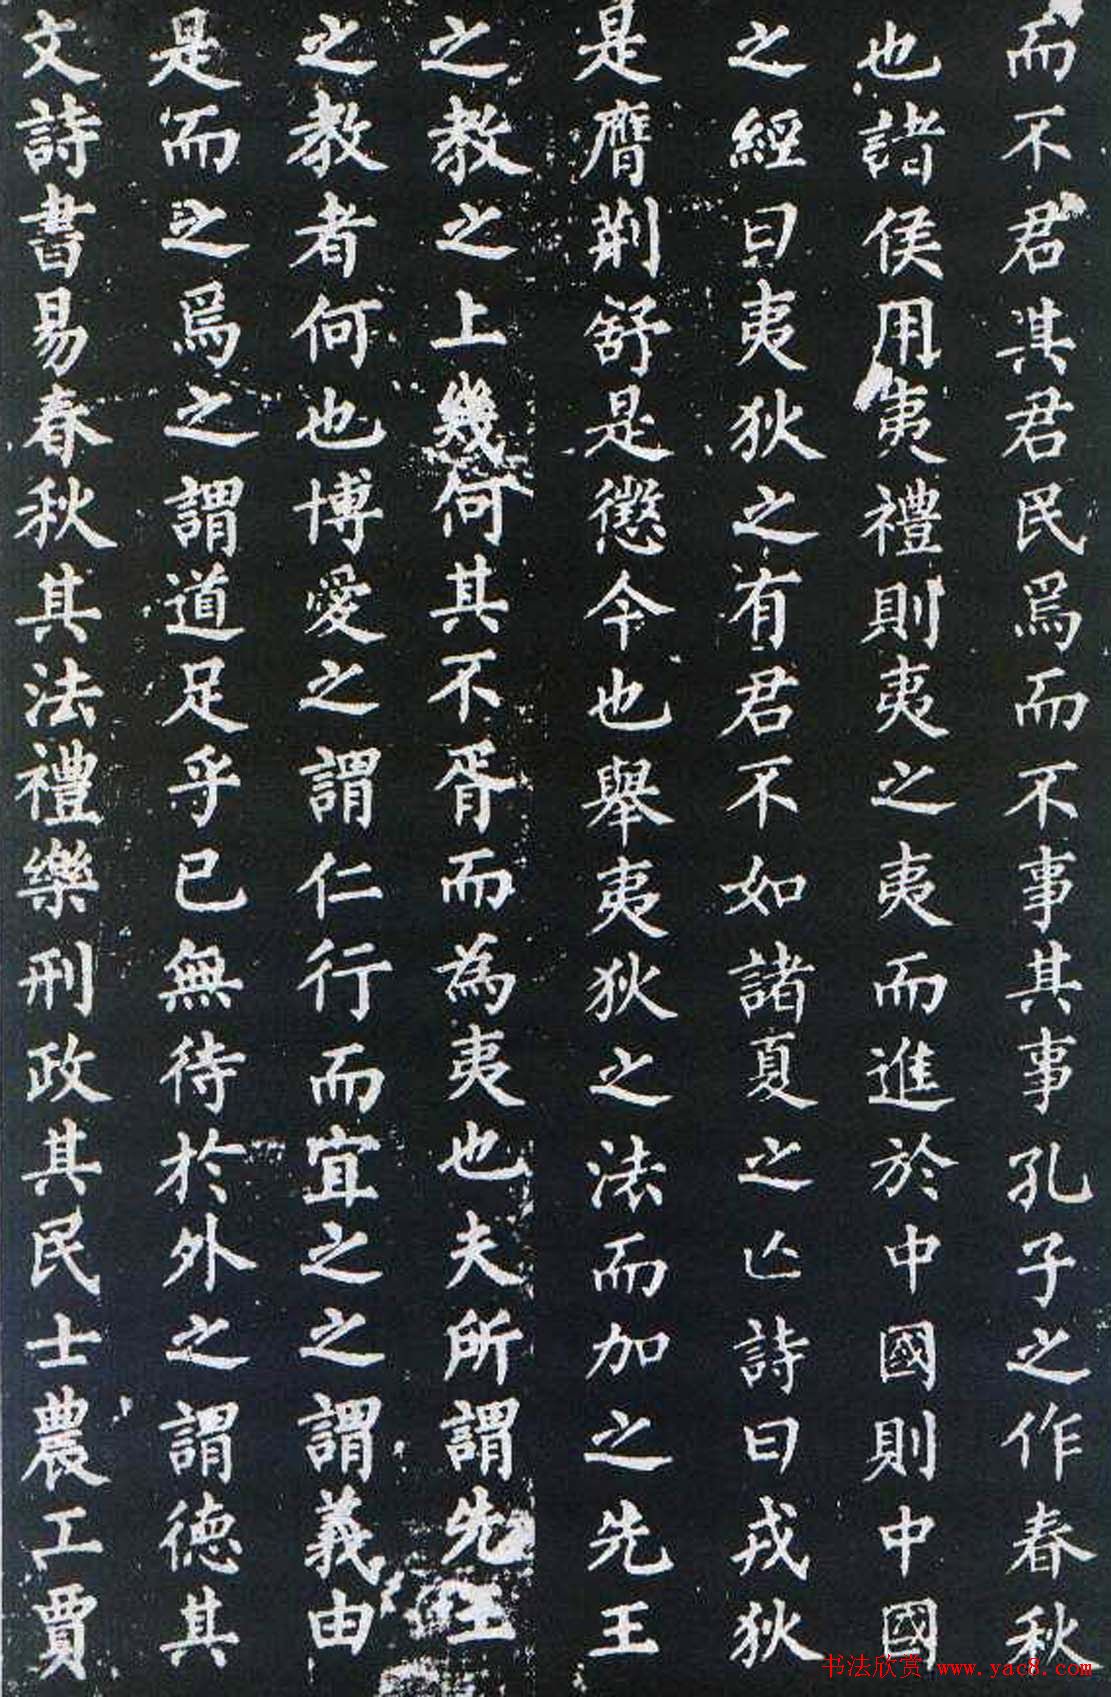 而不君其君民焉而不事其事孔子之作春秋
也諸侯用夷禮則夷之夷而進於中國則中國
之經曰夷狄之有君不如諸夏之亡詩曰戎狄
是膺荆舒是懲今也舉夷狄之法而加之先王
之教之上幾何其不胥而為夷也夫所謂先王
之教者何也博愛之謂仁行而宜之之謂義由
是而之焉之謂道足乎已無待於外之謂德其
文詩書易春秋其法禮樂刑政其民士農工賈
书法欣赏 www.yac8.com